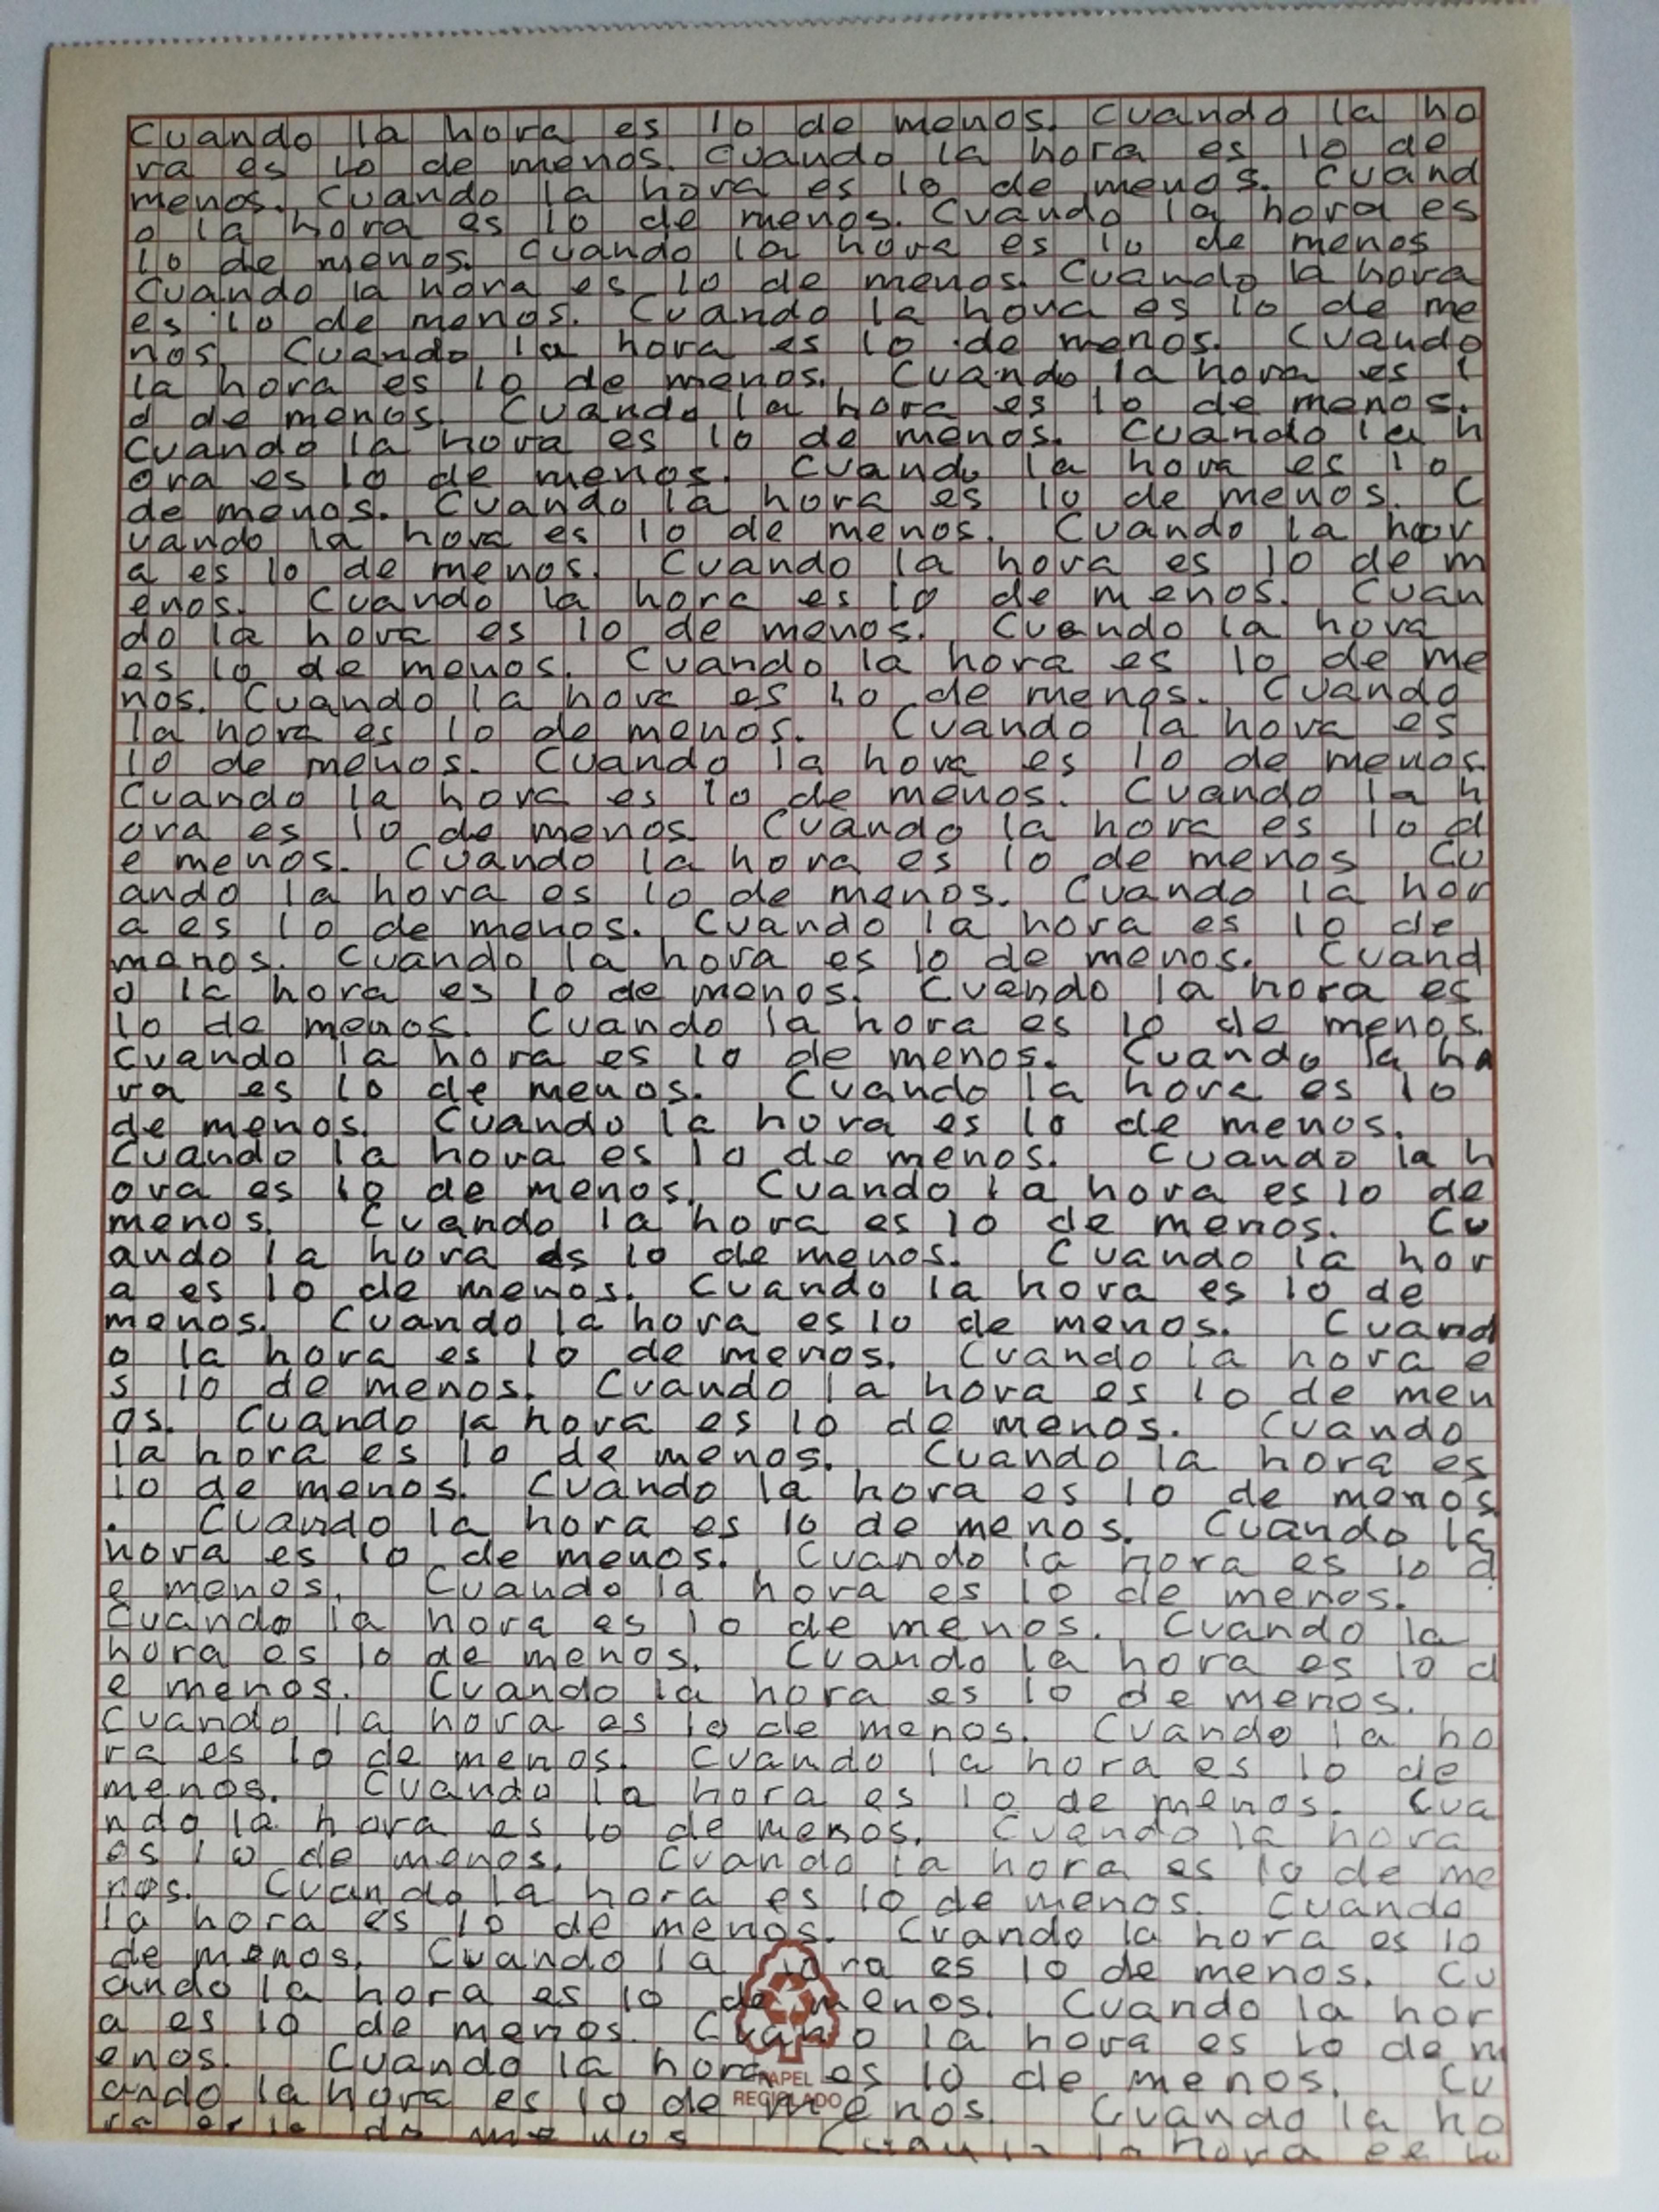 Cuando la hora es lo de menos. Cuando la ho
ra es lo de menos. Cuando la hora es lo de
menos. Cuando la hora es lo de menos. Cuand
o la hora es lo de menos. Cuando la hora es
lo de menos. Cuando la hora es lo de menos
Cuando la hora es lo de menos. Cuando la hora
es lo de menos. Cuando la hora es lo de me
nos. Cuando la hora es lo de menos. Cuando
la hora es lo de menos. Cuando la hora es l
o de menos. Cuando la hora es lo de menos.
Cuando la hora es lo de menos. Cuando la h
ora es lo de menos. Cuando la hora es lo
de menos. Cuando la hora es lo de menos. C
uando la hora es lo de menos. Cuando la hor
a es lo de menos. Cuando la hora es lo de m
enos. Cuando la hora es lo de menos. Cuan
do la hora es lo de menos. Cuando la hora
es lo de menos. Cuando la hora es lo de me
nos. Cuando la hora es lo de menos. Cuando
la hora es lo de menos. Cuando la hora es
lo de menos. Cuando la hora es lo de menos.
Cuando la hora es lo de menos. Cuando la h
ora es lo de menos. Cuando la hora es lo d
e menos. Cuando la hora es lo de menos Cu
ando la hora es lo de menos. Cuando la hor
a es lo de menos. Cuando la hora es lo de
menos. Cuando la hora es lo de menos. Cuand
o la hora es lo de menos. Cuando la hora es
lo de menos. Cuando la hora es lo de menos.
Cuando la hora es lo de menos. Cuando la ho
ra es lo de menos. Cuando la hora es lo
de menos. Cuando la hora es lo de menos.
Cuando la hora es lo de menos. Cuando la h
ora es lo de menos. Cuando la hora es lo de
menos. Cuando la hora es lo de menos. Cu
ando la hora es lo de menos. Cuando la hor
a es lo de menos. Cuando la hora es lo de
menos. Cuando la hora es lo de menos. Cuand
o la hora es lo de menos. Cuando la hora e
s lo de menos. Cuando la hora es lo de men
os. Cuando la hora es lo de menos. Cuando
la hora es lo de menos. Cuando la hora es
lo de menos. Cuando la hora es lo de menos
. Cuando la hora es lo de menos. Cuando la
hora es lo de menos. Cuando la hora es lo d
e menos. Cuando la hora es lo de menos.
Cuando la hora es lo de menos. Cuando la
hora es lo de menos. Cuando la hora es lo d
e menos. Cuando la hora es lo de menos.
Cuando la hora es lo de menos. Cuando la ho
ra es lo de menos. Cuando la hora es lo de
menos. Cuando la hora es lo de menos. Cua
ndo la hora es lo de menos. Cuando la hora
es lo de menos. Cuando la hora es lo de me
nos. Cuando la hora es lo de menos. Cuando
la hora es lo de menos. Cuando la hora es lo
de menos. Cuando la hora es lo de menos. Cu
ando la hora es lo de menos. Cuando la hor
a es lo de menos. Cuano la hora es lo de m
enos. Cuando la hora es lo de menos. Cu
PAPEL
ando la hora es lo de menos. Cuando la ho
RECICLADO
ra es lo de menos la hora es lo